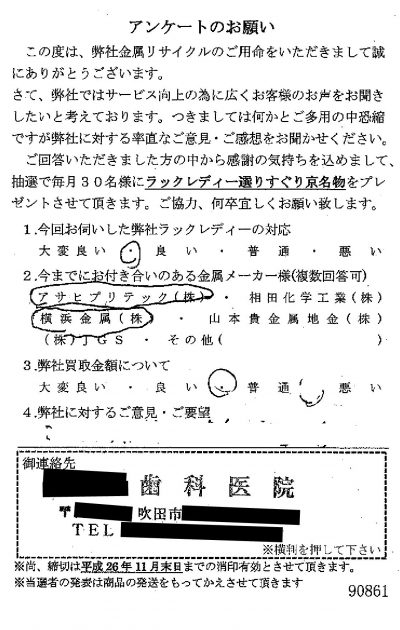 アンケートのお願い
この度は、弊社金属リサイクルのご用命をいただきまして誠
にありがとうございます。
さて、弊社ではサービス向上の為に広くお客様のお声をお聞き
したいと考えております。つきましては何かとご多用の中恐縮
ですが弊社に対する率直なご意見・ご感想をお聞かせください。
ご回答いただきました方の中から感謝の気持ちを込めまして、
抽選で毎月30名様にラックレディー選りすぐり京名物をプレ
ゼントさせて頂きます。ご協力、何卒宜しくお願い致します。
1.今回お伺いした弊社ラックレディーの対応
大変良い・良い・普通・悪い
2.今までにお付き合いのある金属メーカー様(複数回答可)
アサヒプリテック(株)・相田化学工業(株)
横浜金属(株)・山本貴金属地金(株)
(株)JGS・その他( )
3.弊社買取金額について
大変良い・良い・普通・悪い
4.弊社に対するご意見・ご要望
御連絡先
歯科医院
〒 吹田市
TEL
※横判を押して下さい
※尚、締切は平成26年11月末日までの消印有効とさせて頂きます。
※当選者の発表は商品の発送をもってかえさせて頂きます
90861